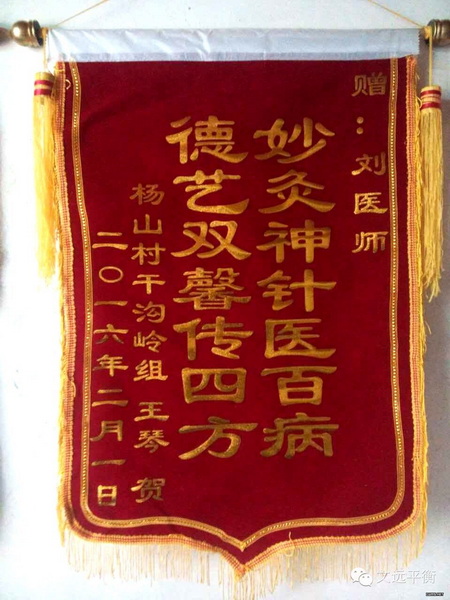 赠：刘医师
妙灸神针医百病
德艺双馨传四方
杨山村干沟岭组 王琴 贺
二〇一六年二月一日
文远平衡